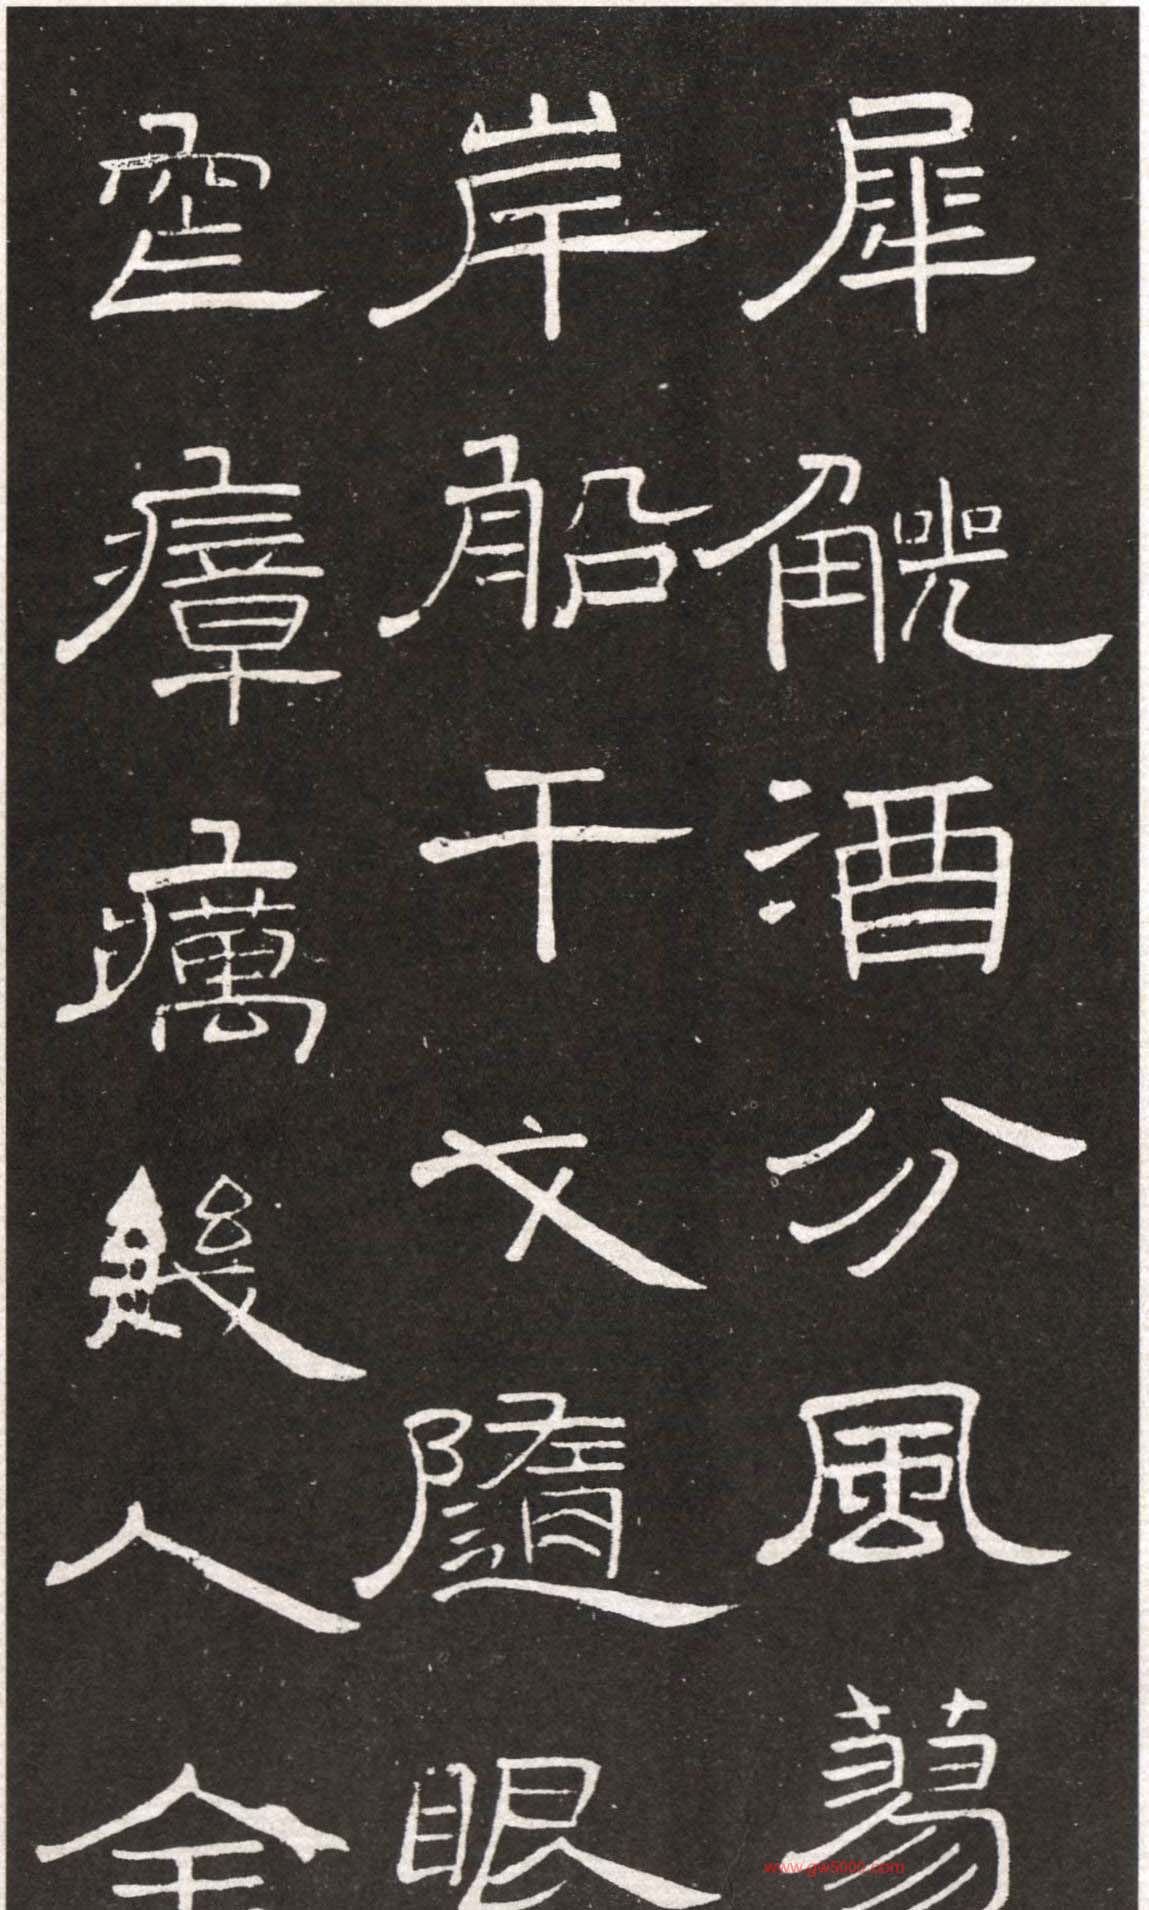 犀觥酒分風蕩
岸船干戈隨眼
空瘴癘幾人全
www.gw5000.com